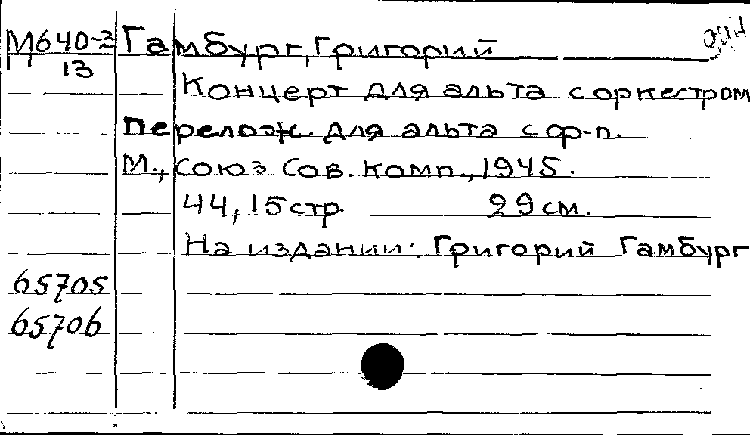 М640-3 Гамбург, Григорий
13
Концерт для альта с оркестром
Перелож. для альта с ф-п.
М., Союз Сов. Комп., 1945.
44, 15 стр. 29 см.
На издании: Григорий Гамбург
65705
65706